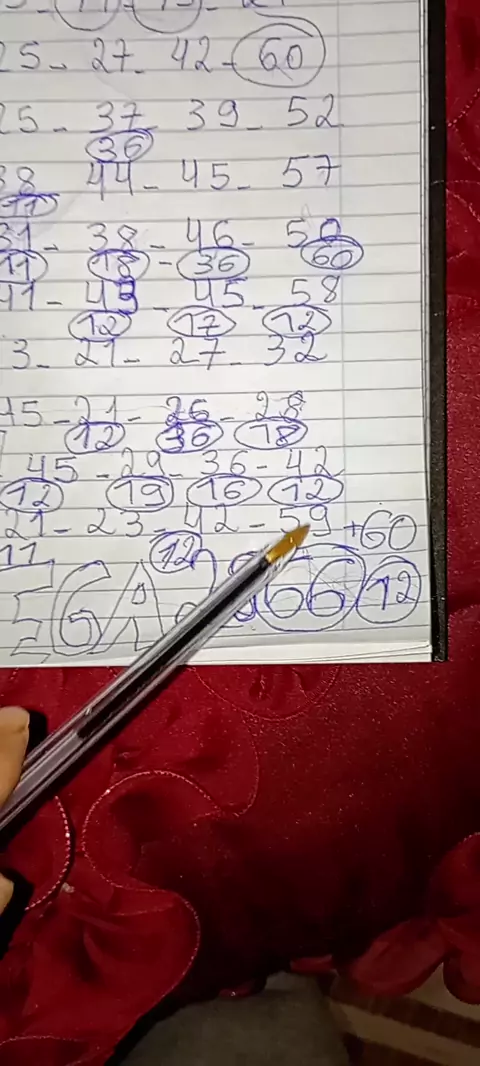 25 - 27 - 42 - 60
25 - 37 39 - 52
36
38 44 - 45 - 57
11
31 - 38 - 46 - 50
11 18 - 36 60
41 - 49 - 45 - 58
12 17 12
3 - 21 - 27 - 32
45 - 21 - 26 - 28
12 36 18
45 - 29 - 36 - 42
12 19 16 12
21 - 23 - 42 - 59 + 60
11 12
EGA 66 12